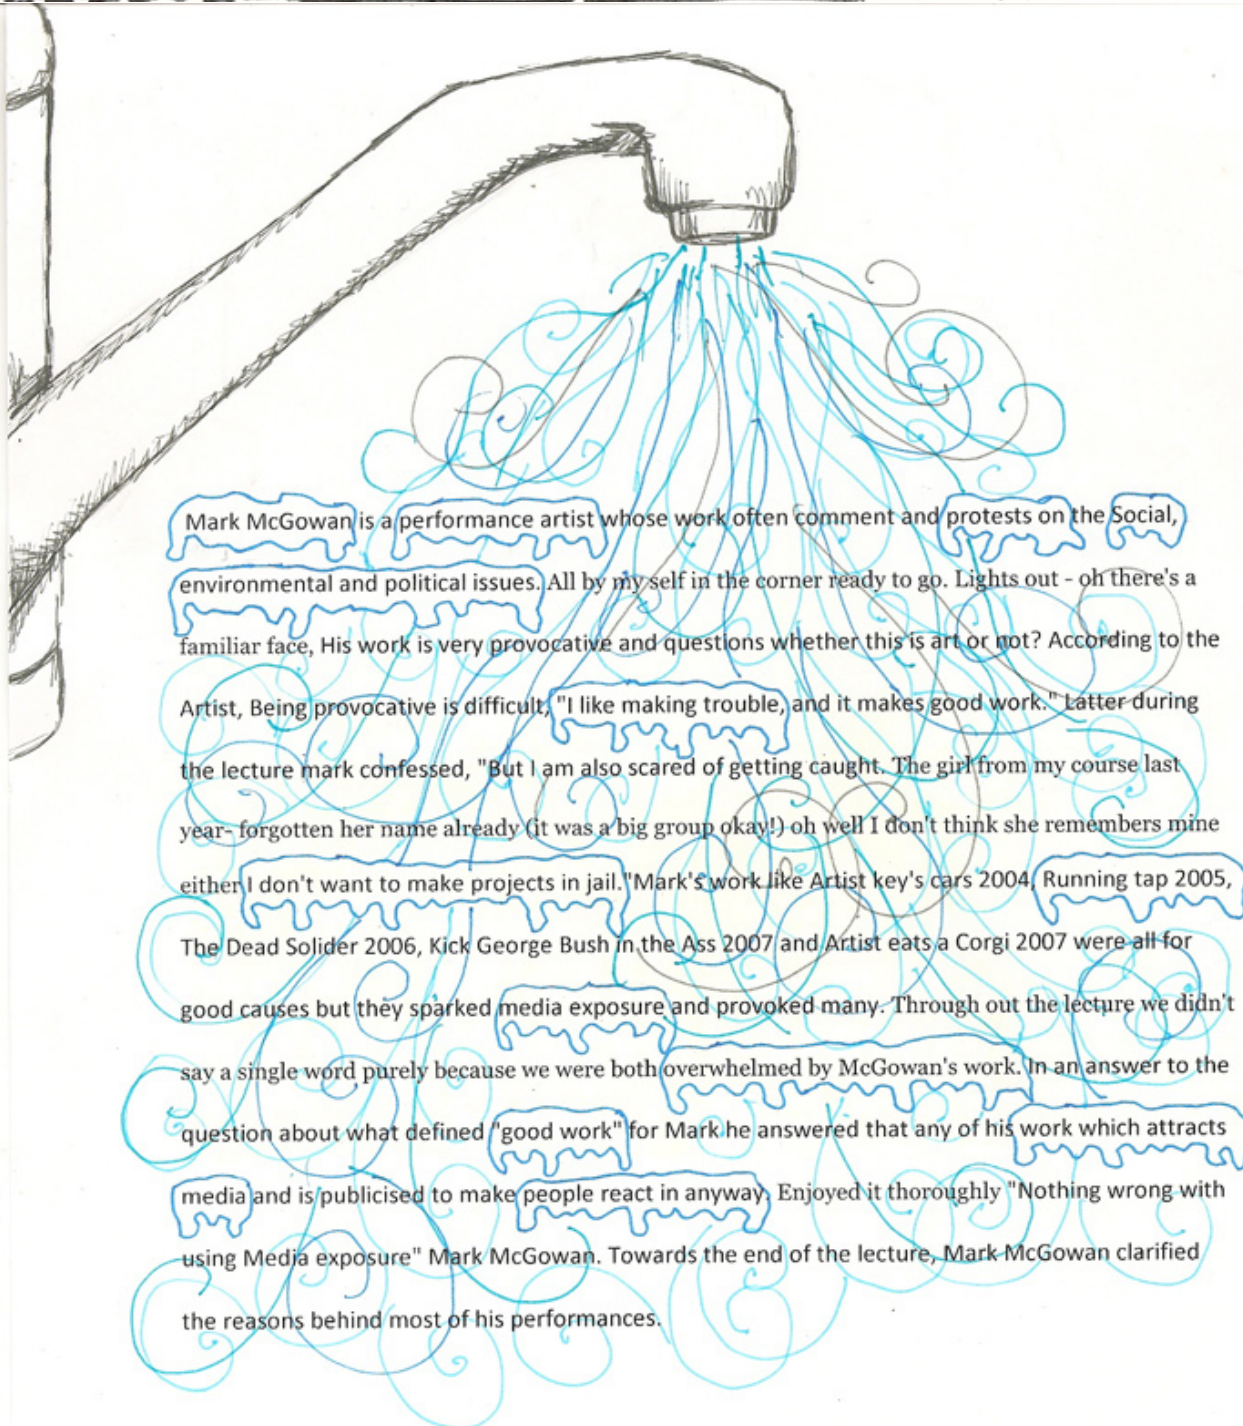 Mark McGowan is a performance artist whose work often comment and protests on the Social,
environmental and political issues. All by my self in the corner ready to go. Lights out - oh there's a
familiar face, His work is very provocative and questions whether this is art or not? According to the
Artist, Being provocative is difficult, "I like making trouble, and it makes good work." Latter during
the lecture mark confessed, "But I am also scared of getting caught. The girl from my course last
year- forgotten her name already (it was a big group okay!) oh well I don't think she remembers mine
either I don't want to make projects in jail."Mark's work like Artist key's cars 2004, Running tap 2005,
The Dead Solider 2006, Kick George Bush in the Ass 2007 and Artist eats a Corgi 2007 were all for
good causes but they sparked media exposure and provoked many. Through out the lecture we didn't
say a single word purely because we were both overwhelmed by McGowan's work. In an answer to the
question about what defined "good work" for Mark he answered that any of his work which attracts
media and is publicised to make people react in anyway. Enjoyed it thoroughly "Nothing wrong with
using Media exposure" Mark McGowan. Towards the end of the lecture, Mark McGowan clarified
the reasons behind most of his performances.